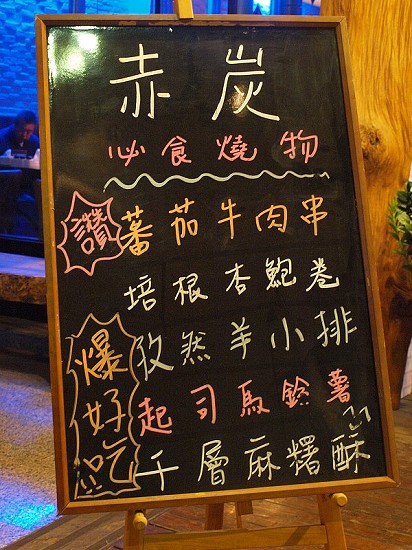 赤炭
必食燒物
讚
蕃茄牛肉串
培根杏鮑卷
孜然羊小排
爆好吃
起司馬鈴薯
千層麻糬酥